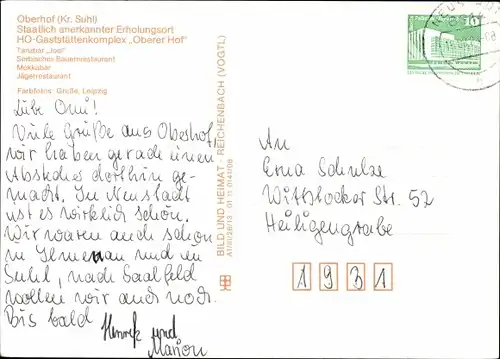 Oberhof (Kr. Suhl)
Staatlich anerkannter Erholungsort
HO-Gaststättenkomplex „Oberer Hof"
Tanzbar „Joel"
Serbisches Bauernrestaurant
Mokkabar
Jägerrestaurant
Farbfotos: Große, Leipzig
Liebe Omi!
Viele Grüße aus Oberhof,
wir haben gerade einen
Abstecher dorthin ge-
macht. In Neustadt
ist es wirklich schön.
Wir waren auch schon
in Ilmenau und in
Suhl, nach Saalfeld
wollen wir auch noch.
Bis bald
und
Marion
BILD UND HEIMAT · REICHENBACH (VOGTL)
10
An
Erna Schulze
Wittstocker Str. 52
Heiligengrabe
1931